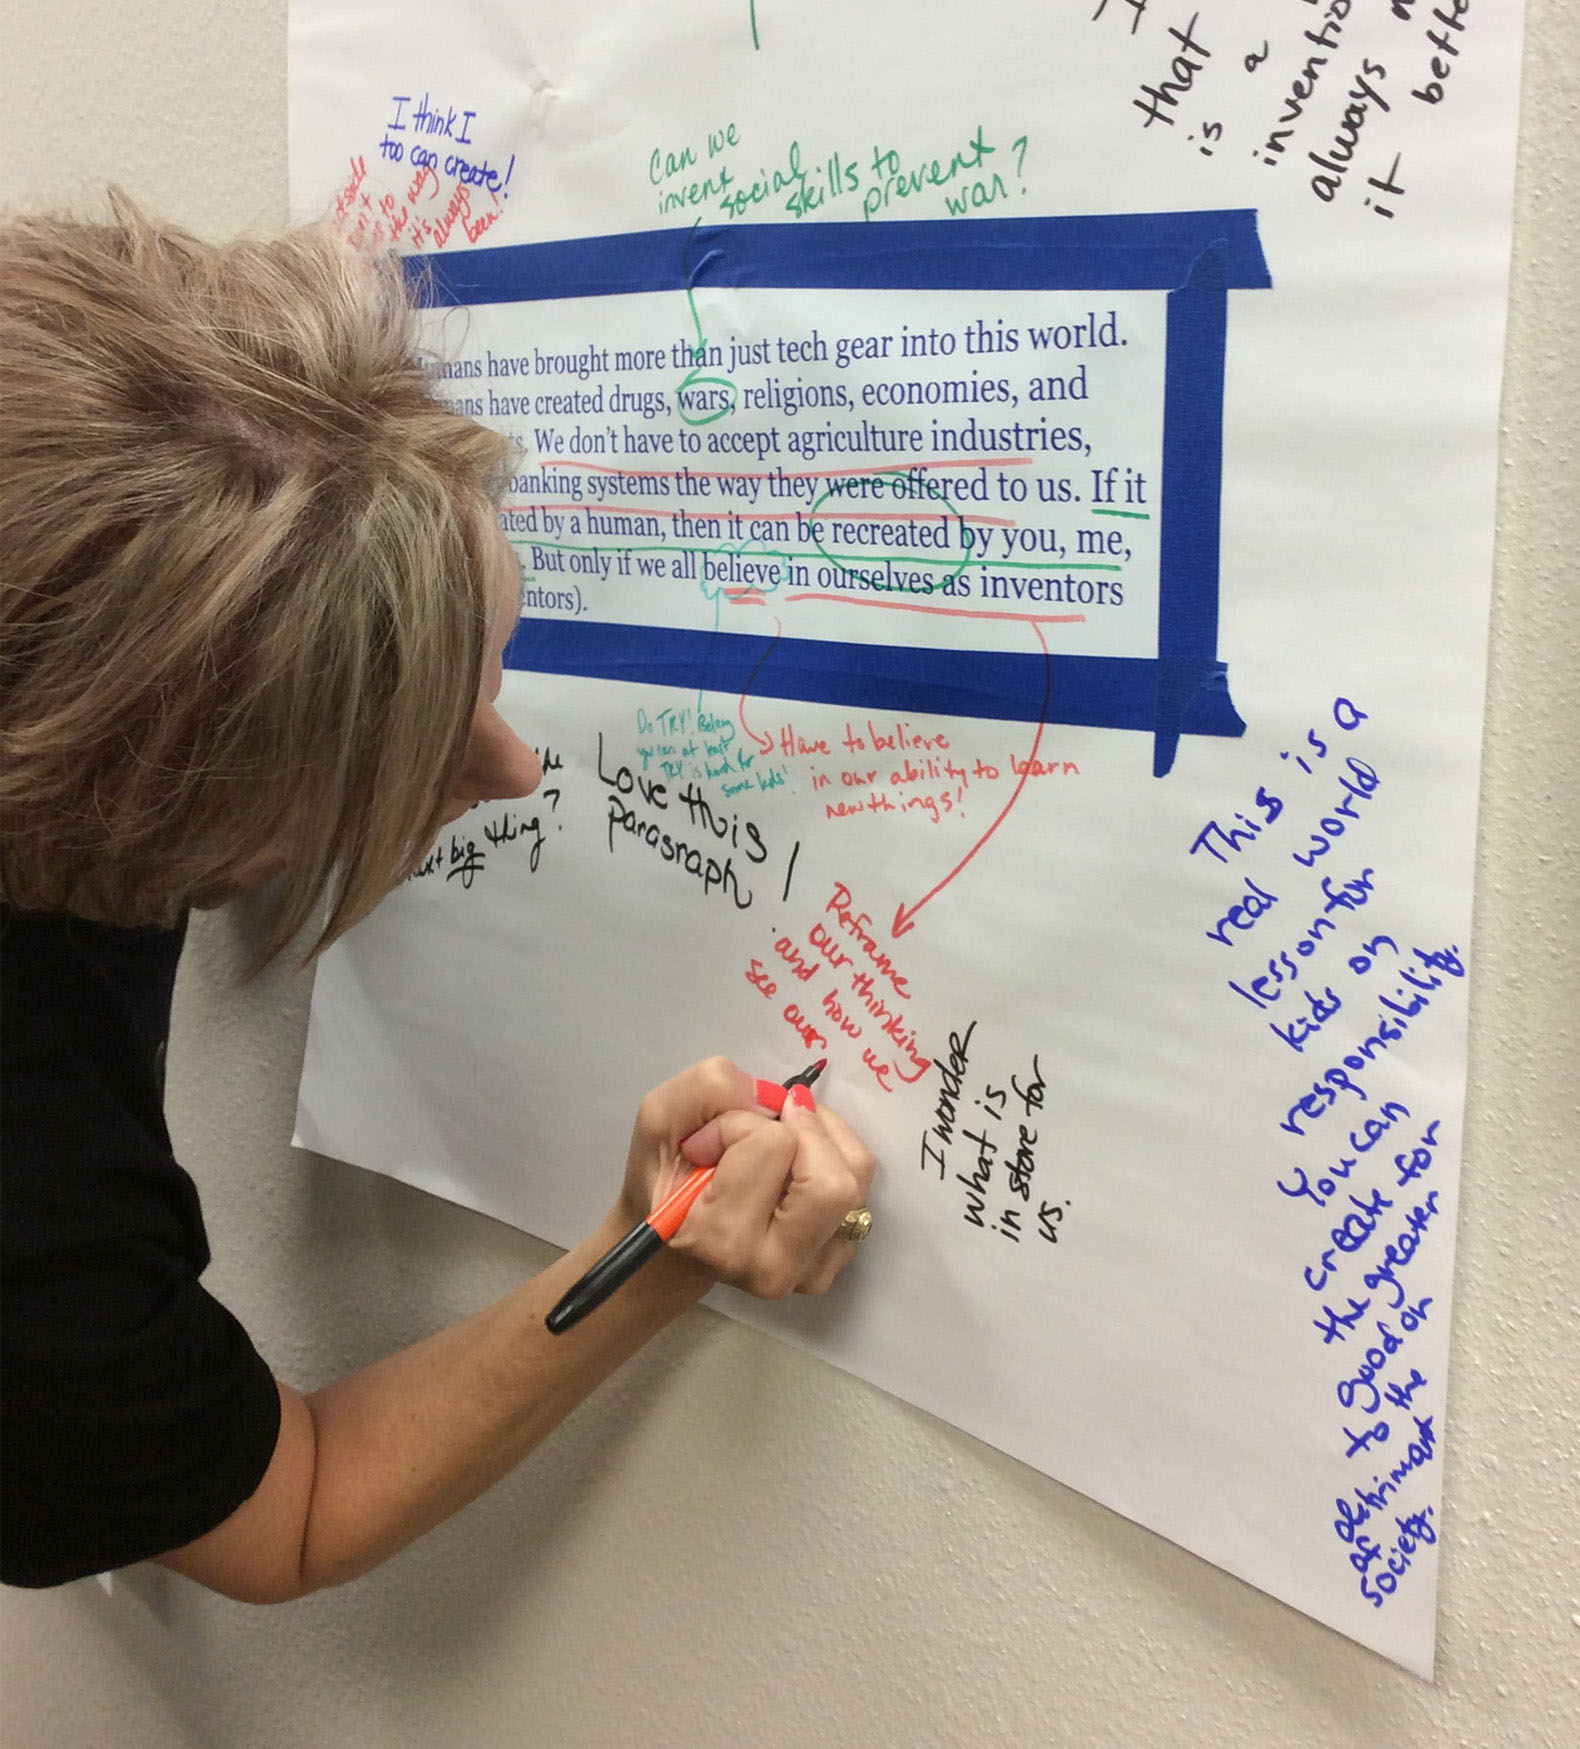 that
is
a
inventio
always
it
bette
I think I
too can create!
the way
it's
always
been!
Can we
invent
social
skills to
prevent
war?
mans have brought more than just tech gear into this world.
mans have created drugs, wars, religions, economies, and
ts. We don't have to accept agriculture industries,
banking systems the way they were offered to us. If it
ated by a human, then it can be recreated by you, me,
. But only if we all believe in ourselves as inventors
ntors).
big thing?
Love this
Paragraph
!
Do TRY! Being
you can at least
TRY is hard for
some kids!
Have to believe
in our ability to learn
new things!
Reframe
our thinking
and how we
see our
I wonder
what is
in store for
us.
This is a
real world
lesson for
kids on
responsibility.
You can
create for
the greater
good or
to the
detriment
of
society.